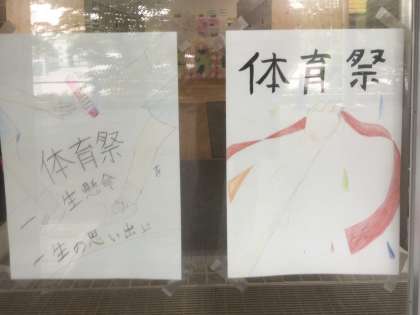 体育祭
一生懸命
一生の思い出に
体育祭